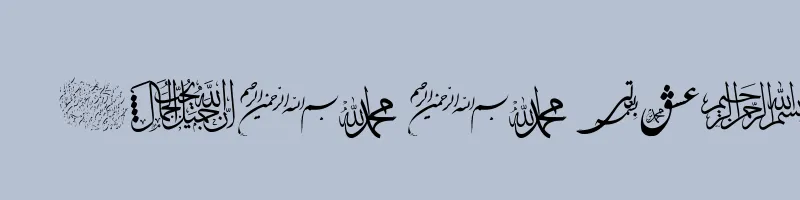 بسم الله الرحمن الرحيم عشق محمد الله محمد بسم الله الرحمن الرحيم الله محمد بسم الله الرحمن الرحيم إن الله جميل يحب الجمال